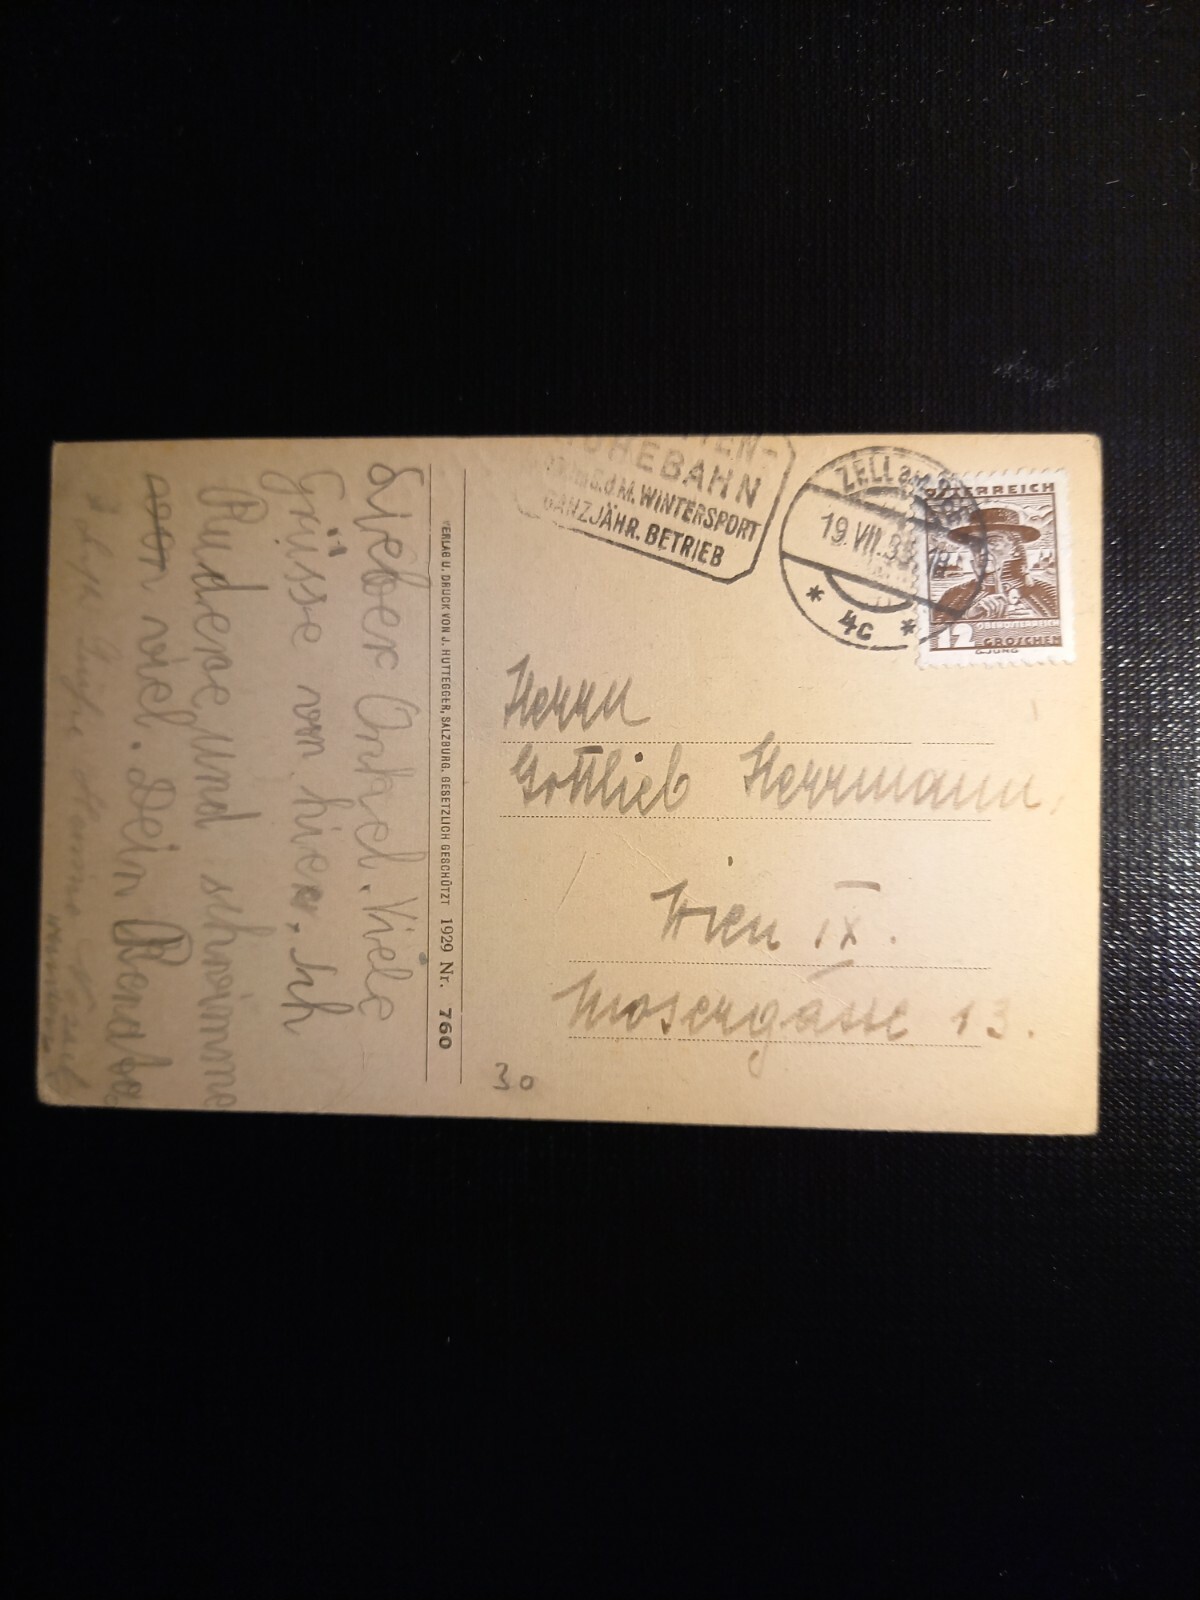 Lieber Onkel. Viele
Grüsse von hier. Ich
Rudere und schwimme
viel. Dein
VERLAG U. DRUCK VON J. HUTTEGGER, SALZBURG. GESETZLICH GESCHÜTZT 1929 Nr. 760
HÖHEBAHN
WINTERSPORT
GANZJÄHR. BETRIEB
ZELL am
19.VII.3
* 4c *
ÖSTERREICH
OBERÖSTERREICH
12 GROSCHEN
G. JUNG
Herrn
Gottlieb Herrmann,
Wien IX.
Mosergasse 13.
30